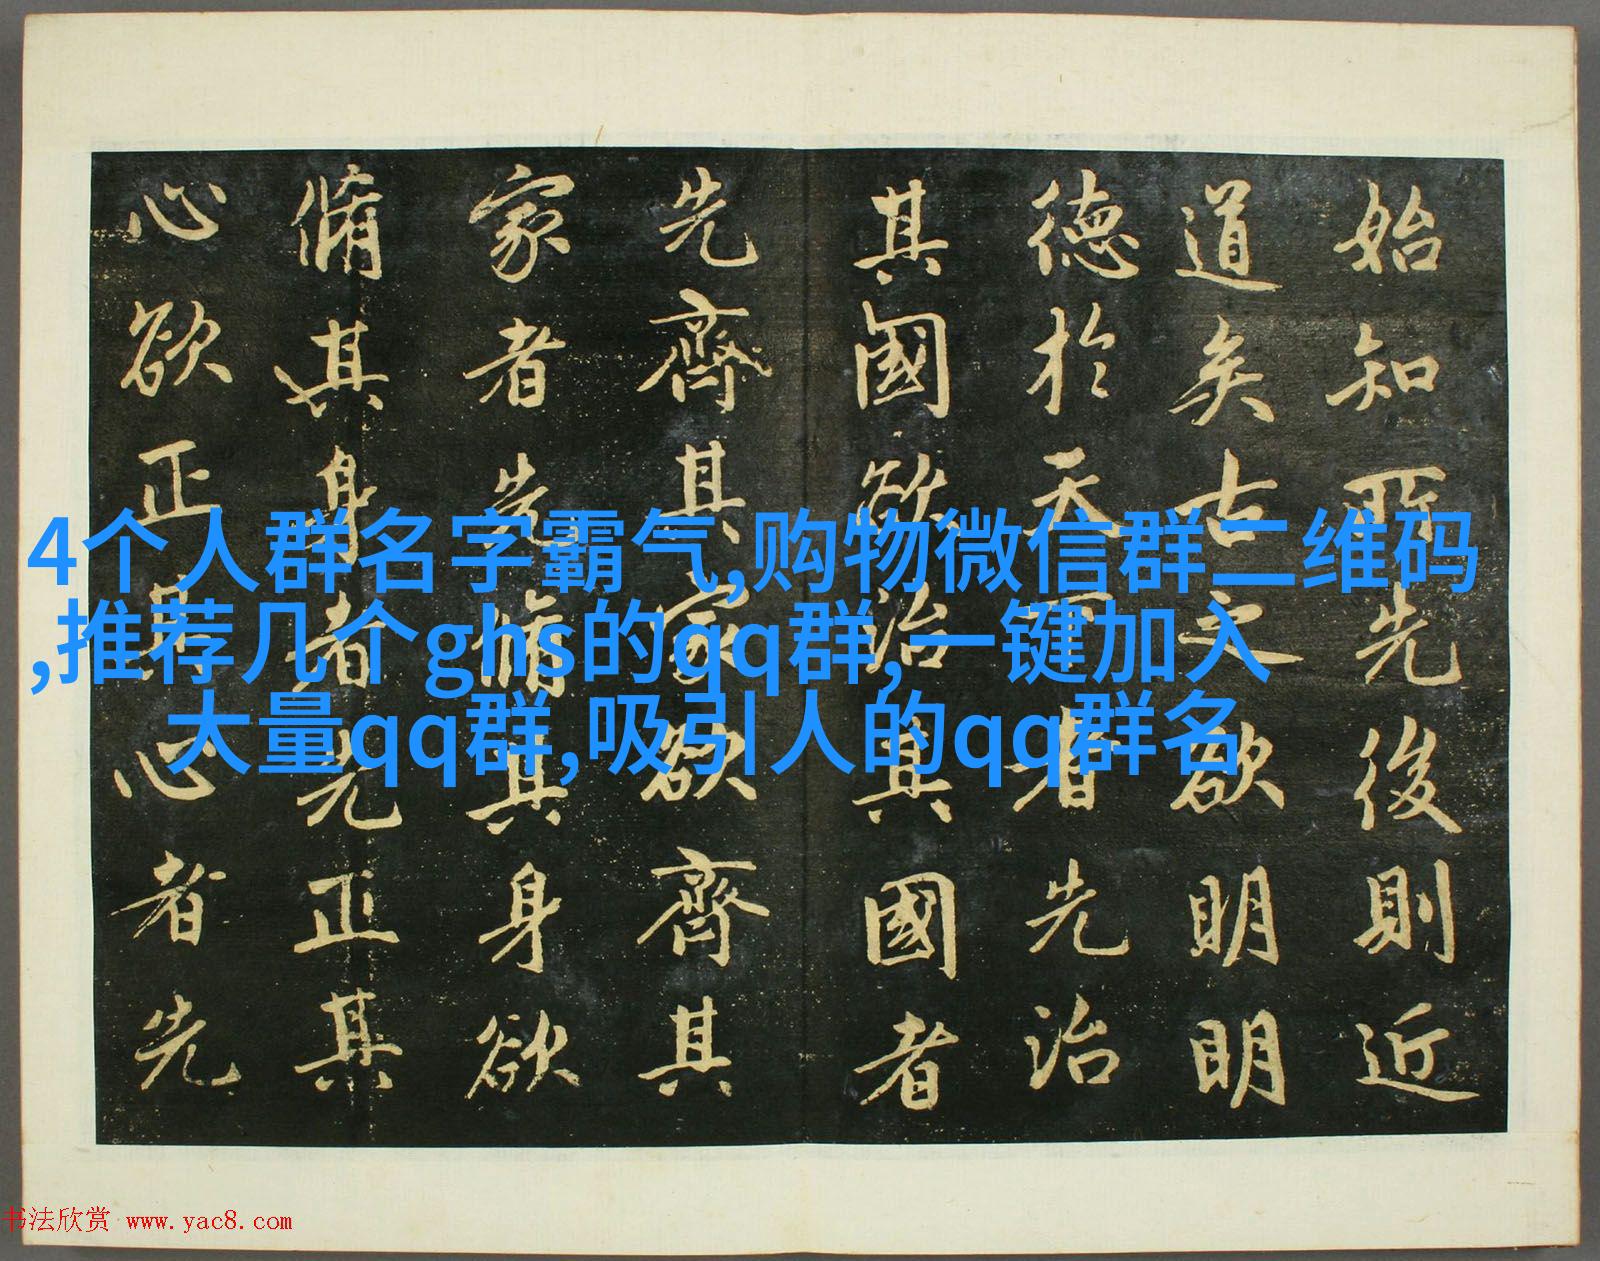 始知所先後則近
道矣古之欲明明
德於天下者先治
其國欲治其國者
先齊其家欲齊其
家者先脩其身欲
脩其身者先正其
心欲正其心者先
4个人群名字霸气,购物微信群二维码
,推荐几个ghs的qq群,一键加入
大量qq群,吸引人的qq群名
书法欣赏 www.yac8.com